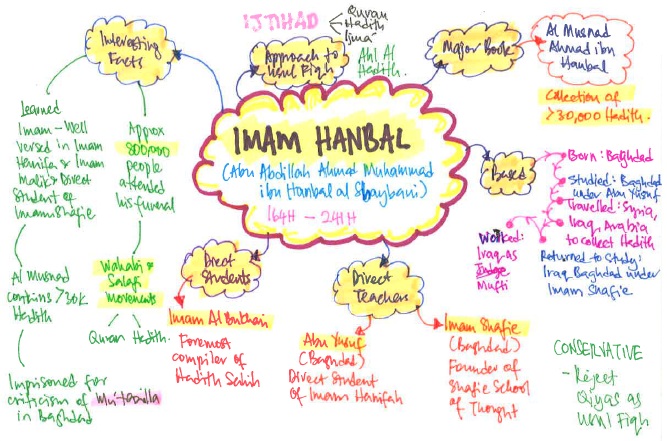 IJTIHAD
Quran
Hadith
Ijma'
Interesting
Facts
Approach to
Usul Fiqh
Ahl Al
Hadith.
Major Book
Al Musnad
Ahmad ibn
Hanbal
Collection of
>30,000 Hadith.
IMAM HANBAL
(Abu Abdillah Ahmad Muhammad
ibn Hanbal al Shaybani)
164H - 241H
Learned
Imam - Well
versed in Imam
Hanifa & Imam
malik & Direct
Student of
Imam Shafie
Al Musnad
contains >30K
Hadith
Imprisoned for
criticism of Mu'tazilla
in Baghdad
Approx
800,000
people
attended
his funeral
Wahabi &
Salafi
movements
Quran Hadith.
Based
Born: Baghdad
Studied: Baghdad
under Abu Yusuf
Travelled: Syria,
Iraq, Arabia
to collect Hadith
Returned to Study:
Iraq Baghdad under
Imam Shafie
Worked:
Iraq as
Judge
Mufti
Direct
Students
Imam Al Bukhari
Foremost
compiler of
Hadith Sahih
Direct
Teachers
Abu Yusuf
(Baghdad)
Direct Student
of Imam Hanifah
Imam Shafie
(Baghdad)
Founder of
Shafie School
of Thought
CONSERVATIVE
- Reject
Qiyas as
Usul Fiqh